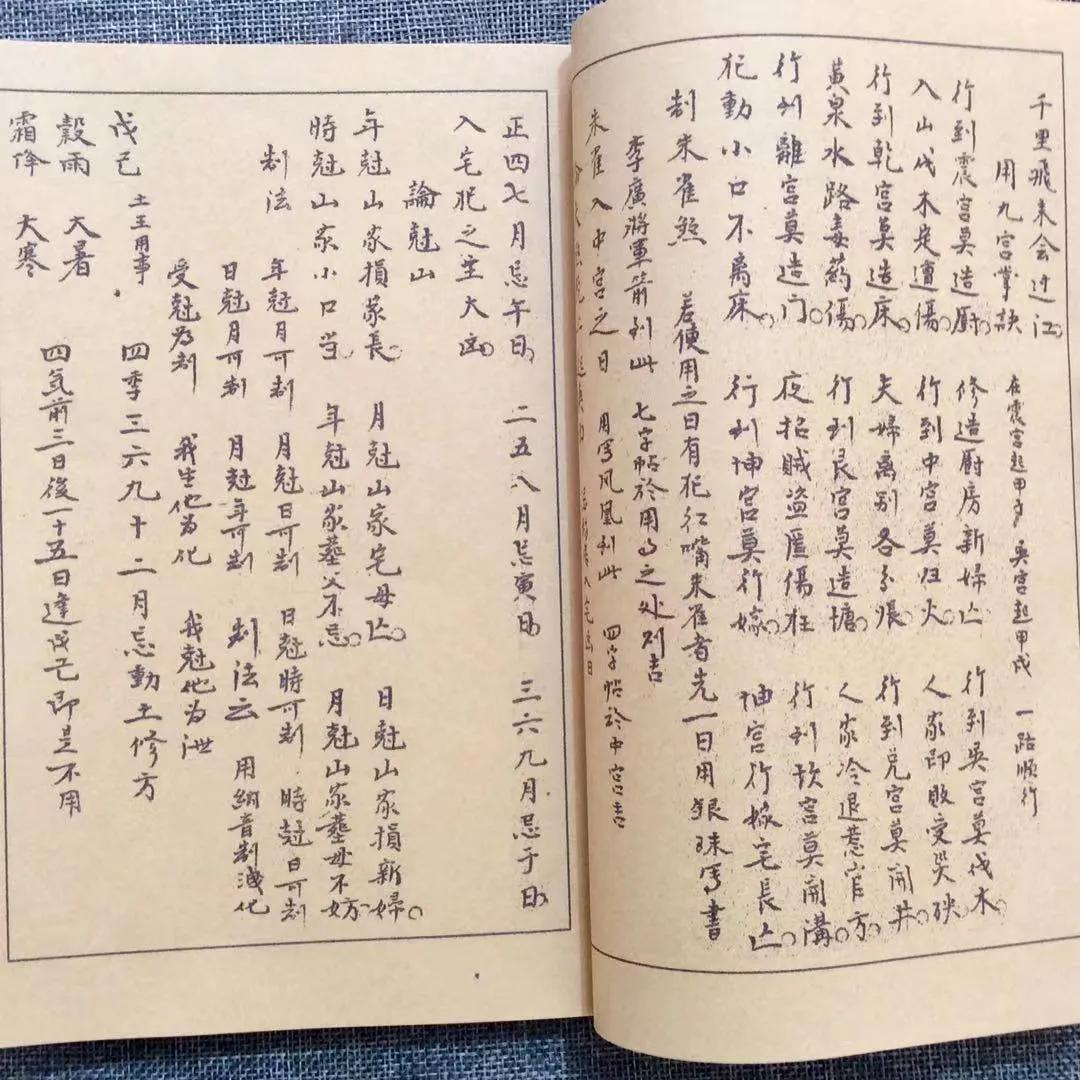 千里飛来会过江
用九宫掌訣　在震宫起甲子　巽宫起甲戌　一路順行
行到震宫莫造厨　修造厨房新婦亡　行到巽宫莫伐木
入山伐木定遭傷　行到中宫莫归火　人家即敗受哭殃
行到乾宫莫造床　夫婦离别各分張　行到兑宫莫開井
黄泉水路毒药傷　行到艮宫莫造塘　人家冷退惹官方
行到離宫莫造门　夜招賊盗匪傷枉　行到坎宫莫開溝
犯動小口不离床　行到坤宫莫行嫁　坤宫行嫁宅長亡
制朱雀煞　若使用之日有犯红嘴朱雀者先一日用銀珠写書
李廣將軍箭到此　七字帖於用事之处则吉
朱雀入中宫之日　用写凤凰到此　四字帖於中宫吉
入宅凶日
正四七月忌午日　二五八月忌寅日　三六九月忌于日
入宅犯之主大凶
論尅山
年尅山家損家長　月尅山家宅母亡　日尅山家損新婦
時尅山家小口当　年尅山家墓父不忌　月尅山家墓母不妨
制法　年尅月可制　月尅日可制　日尅時可制　時尅日可制
日尅月可制　月尅年可制　制法云　用納音制洩化
受尅为制　我生他为化　我尅他为泄
戊己　土王用事　四季三六九十二月忌動土修方
穀雨　大暑
霜降　大寒　四気前三日後一十五日逢戊己即是不用